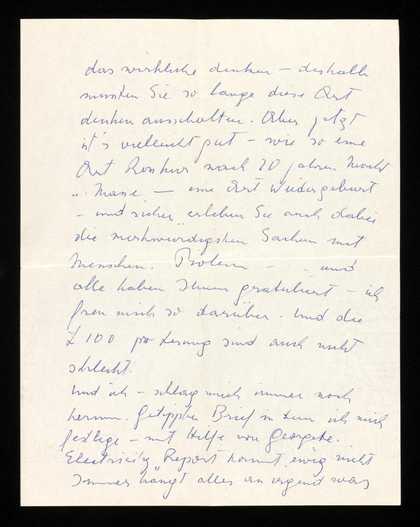 das wirkliche denken – deshalb
mussten Sie so lange diese Art
denken ausschalten. Aber jetzt
ist's vielleicht gut – wie so eine
Art Konkurs nach 20 Jahren Macht
" Manie — eine Art Wiedergeburt
– und sicher erleben Sie auch dabei
die merkwürdigsten Sachen mit
Menschen. – und
alle haben Ihnen gratuliert – ich
freu mich so darüber. Und die
£ 100 pro Lesung sind auch nicht
schlecht.
Und ich – schlag mich immer noch
herum. Getippter Brief in dem ich mich
festlege – mit Hilfe von Georgette.
Electricity Report kommt ewig nicht
Immer hängt alles an irgend was